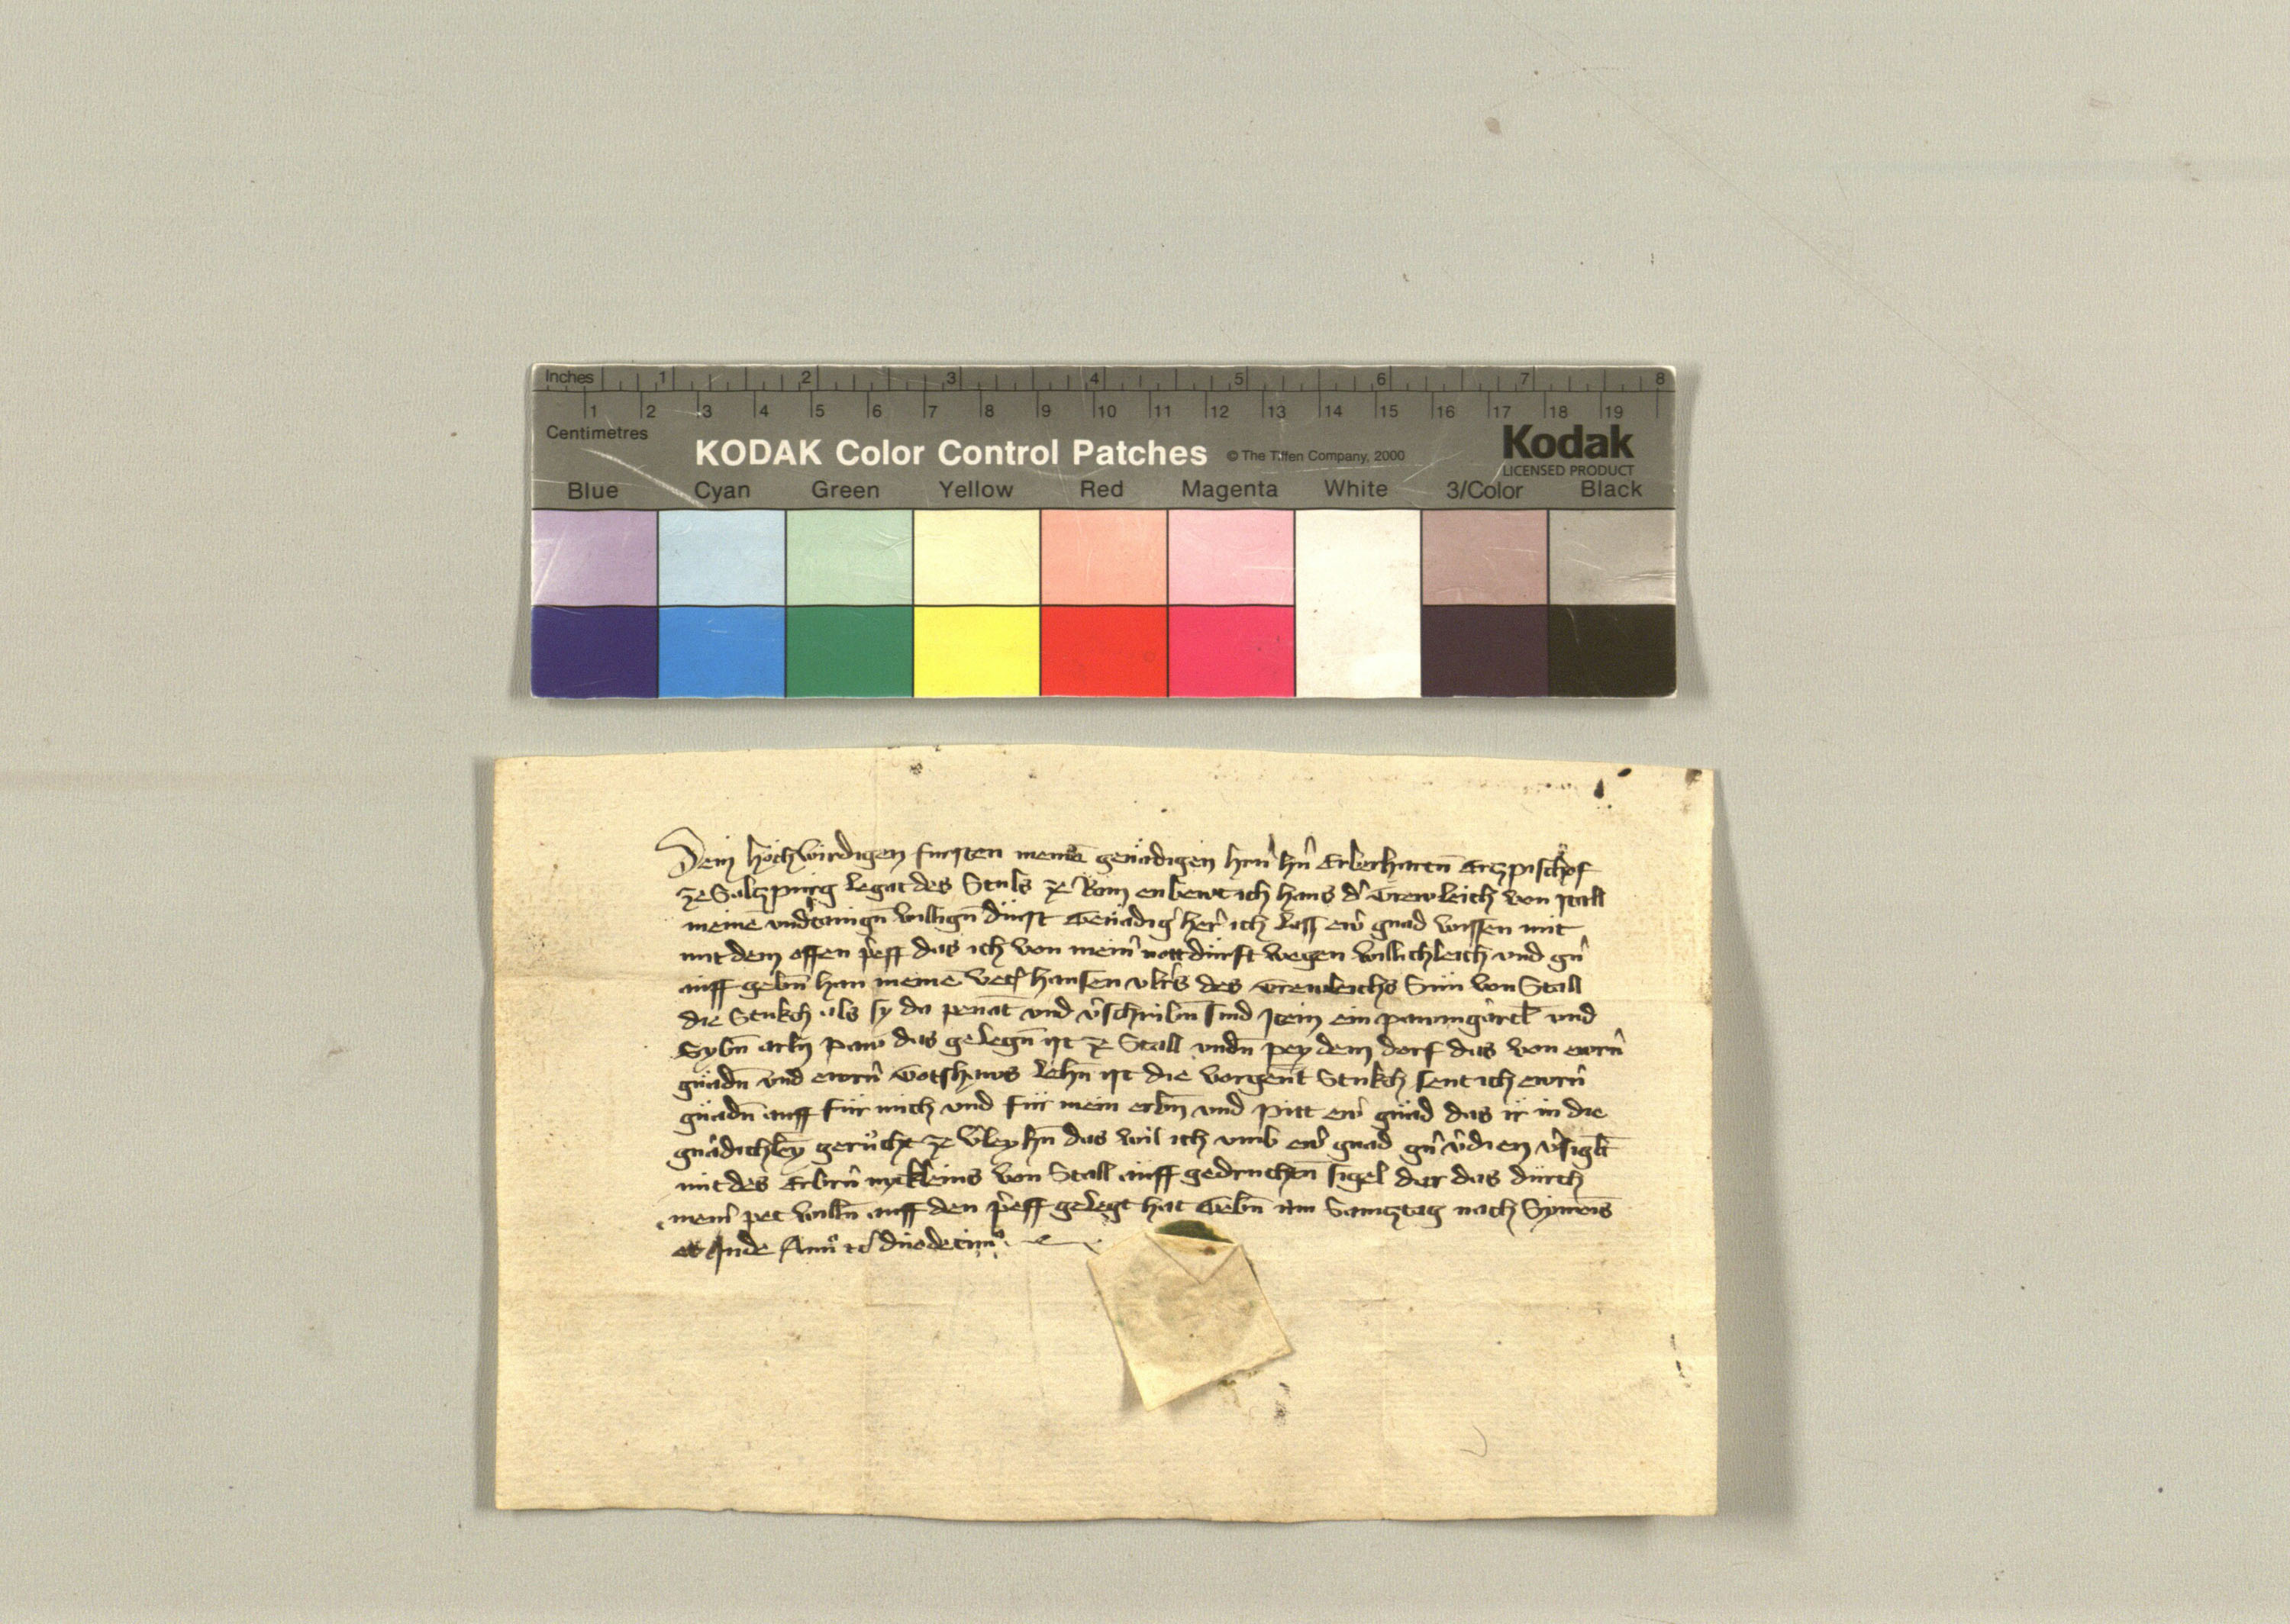 Inches 1 2 3 4 5 6 7 8
1 2 3 4 5 6 7 8 9 10 11 12 13 14 15 16 17 18 19
Centimetres
KODAK Color Control Patches © The Tiffen Company, 2000 Kodak
LICENSED PRODUCT
Blue Cyan Green Yellow Red Magenta White 3/Color Black
Dem hochwirdigen fursten meinē genadigen hrn̄ hn̄ Erberhartn̄ Ertzpischof
ze Saltzpurg legat des Stuls ze Rom enbewt ich hans d' Grewleich von stall
meinē vnd'tanign̄ willign̄ dinst Genadig' her' ich lass ew' gnad wissen mit
mit dem offen p'eff das ich von mein' nottdurft wegen willichleich vnd gn̄
auff gebn̄ han meinē hansen des Grewleichs Sun von Stall
die Stukch als sy da penāt vnd v'schribn̄ sind Item ein pawmgartl̄ vnd
Sybn̄ paw das gelegn̄ ist ze Stall vndn̄ pey dem dorf das von ewrn̄
gnadn̄ vnd ewrn̄ Gotshaws lehn̄ ist die vorgen̄t Stukch sent ich ewrn̄
gnadn̄ auff für mich vnd für mein erbn̄ vnd pitt ew' gnad das ir in die
gnadichley̅ gerucht ze v'leyhn̄ das wil ich vmb ew' gnad gn̄ v'dien v'sigl̄t
mit des Erbrn̄ nykleins von Stall auff gedruchen̄ sigel dar das durch
mein' pet willn̄ auff den p'eff gelegt hat Gebn̄ am Samtztag nach Symonis
et Jude Ann° duodecim°